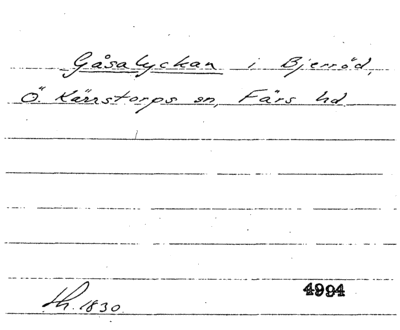 Gåsalyckan i Bjerröd,
Ö. Kärrstorps sn, Färs hd
Lh. 1830
4994